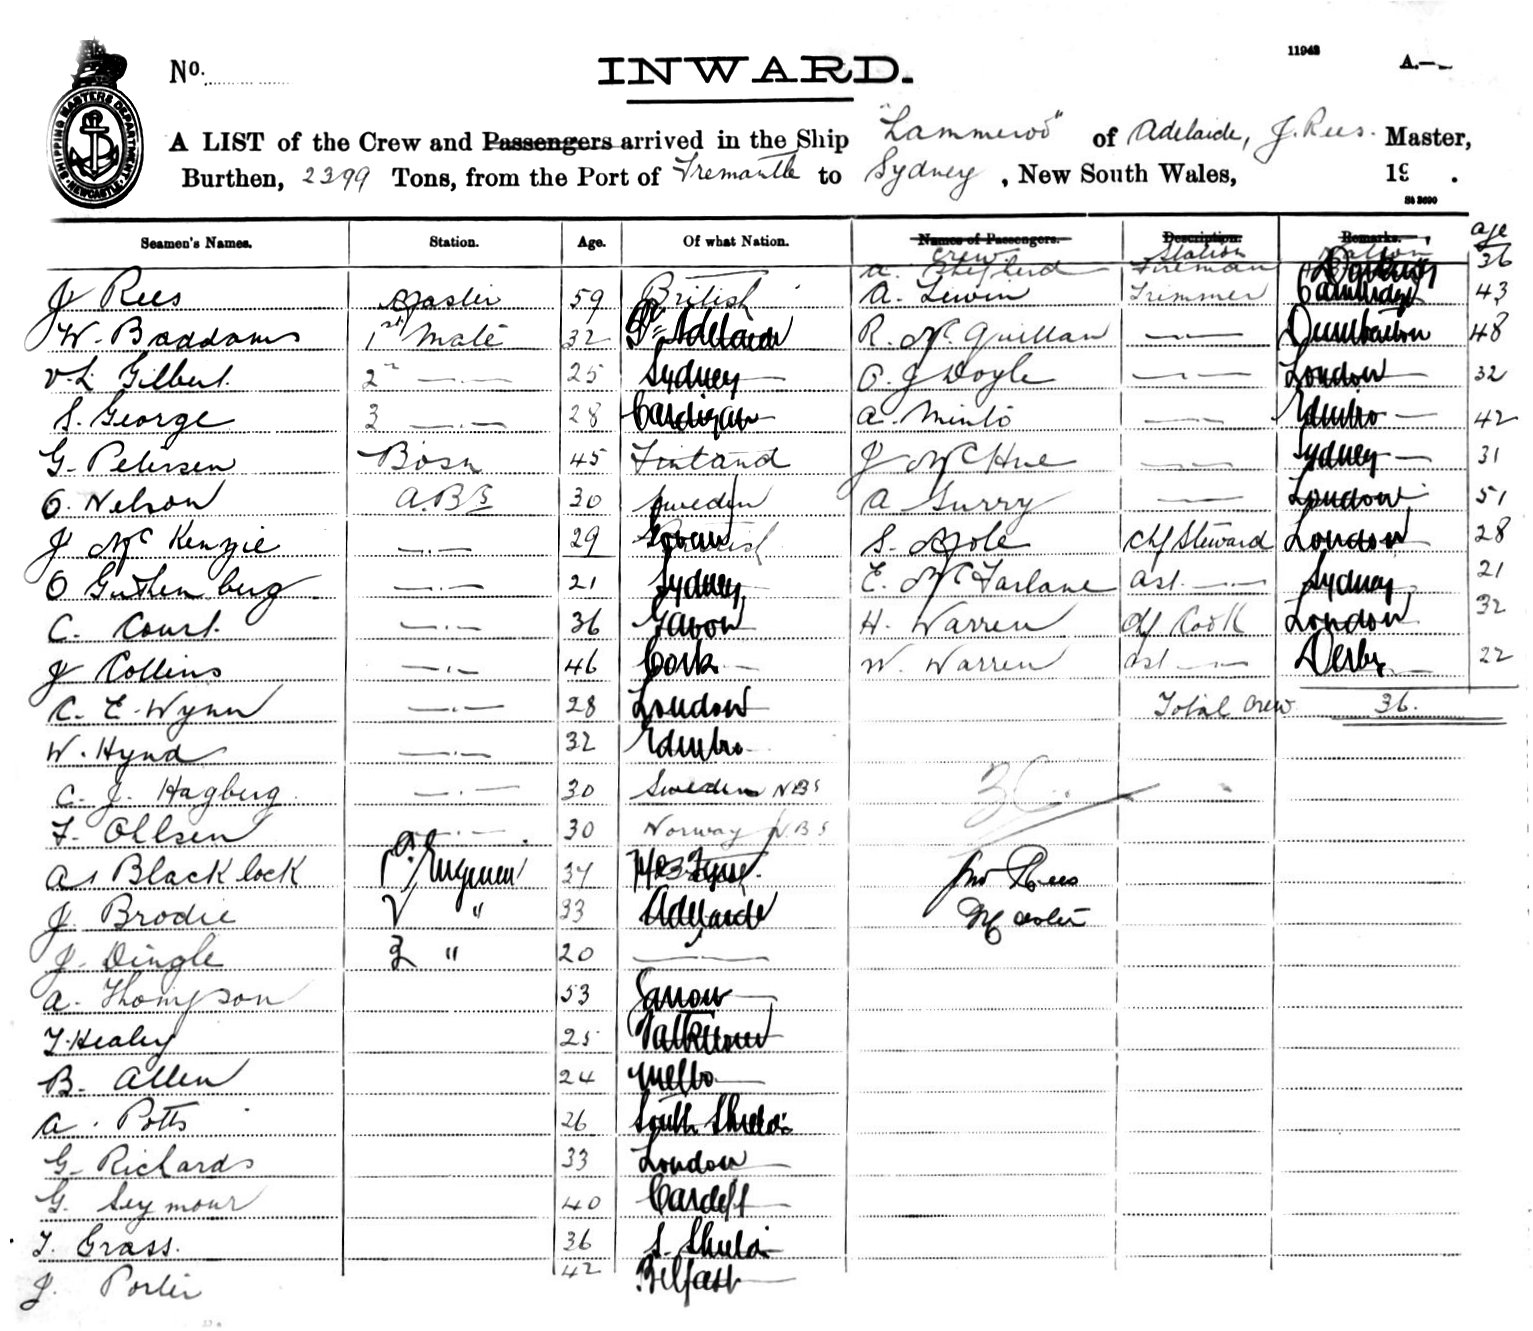 SHIPPING MASTERS DEPARTMENT
NEWCASTLE
No.
INWARD.
11948
A.—
A LIST of the Crew and Passengers arrived in the Ship "Lammeroo" of Adelaide, J. Rees. Master,
Burthen, 2399 Tons, from the Port of Fremantle to Sydney, New South Wales, 19 .
St 3690
Seamen's Names. Station. Age. Of what Nation. Names of Passengers. Description. Remarks. age
crew Station Nation
A. Shepherd Fireman 36
J Rees Master 59 British A. Lewin Trimmer Cambridge 43
W. Baddams 1st Mate 32 Pt Adelaide R. McQuillan —— Dumbarton 48
V. L Gilbert 2nd —.— 25 Sydney P. J Doyle —— London 32
S. George 3 —.— 28 Cardigan A. Minto —— Edinbro 42
G. Petersen Bosn 45 Finland J McHue —— Sydney 31
O. Nelson A.Bs 30 Sweden A Gurry —— London 51
J McKenzie —.— 29 S. Mole Chf Steward London 28
O Guthenberg —.— 21 Sydney E. McFarlane ast —.— Sydney 21
C. Court —.— 36 H. Warren Chf Cook London 32
J Collins —.— 46 Cork W. Warren ast —.— Derby 22
C. E. Wynn —.— 28 London Total crew 36.
W. Hynd —.— 32 Edinbro
C. J. Hagberg —.— 30 Sweden NBS
F. Ollsen —.— 30 Norway N.B S
36
A. Blacklock 1st Engineer 34 Jno Rees
J. Brodie 2 " 33 Adelaide Master
J. Dingle 3 " 20 —.—
A. Thompson 53
T. Healey 25
B. Allen 24 Melbo
A. Potts 26 South Shields
G. Richards 33 London
G. Seymour 40 Cardiff
T. Grass. 36 S. Shields
J. Porter 42 Belfast